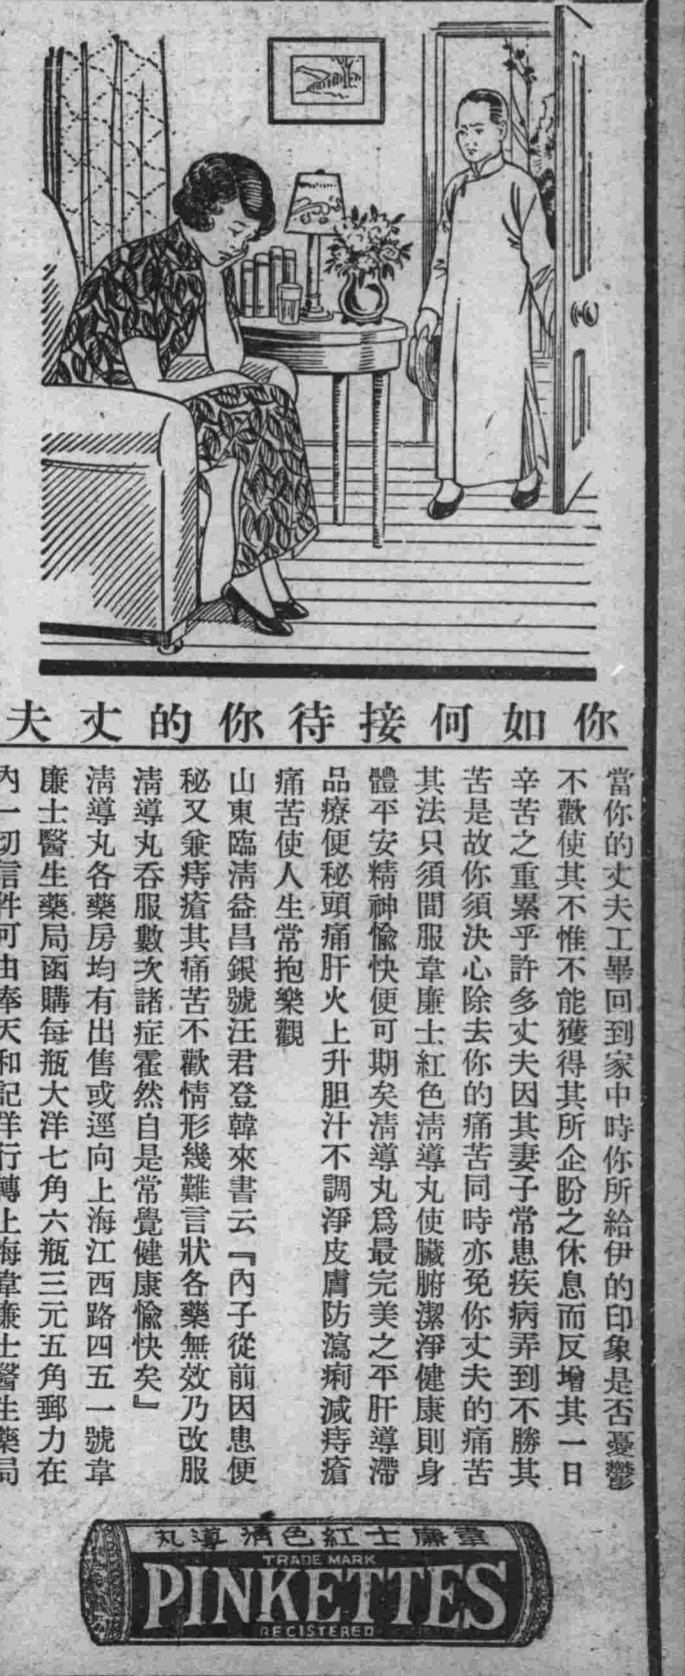 你如何接待你的丈夫
當你的丈夫工畢回到家中時你所給伊的印象是否憂鬱
不歡使其不惟不能獲得其所企盼之休息而反增其一日
辛苦之重累乎許多丈夫因其妻子常患疾病弄到不勝其
苦是故你須決心除去你的痛苦同時亦免你丈夫的痛苦
其法只須間服韋廉士紅色淸導丸使臟腑潔淨健康則身
體平安精神愉快便可期矣淸導丸爲最完美之平肝導滯
品療便秘頭痛肝火上升胆汁不調淨皮膚防瀉痢減痔瘡
痛苦使人生常抱樂觀
山東臨淸益昌銀號汪君登韓來書云『內子從前因患便
秘又兼痔瘡其痛苦不歡情形幾難言狀各藥無效乃改服
淸導丸吞服數次諸症霍然自是常覺健康愉快矣』
淸導丸各藥房均有出售或逕向上海江西路四五一號韋
廉士醫生藥局函購每瓶大洋七角六瓶三元五角郵力在
內一切信件可由奉天和記洋行轉上海韋廉士醫生藥局
韋廉士紅色清導丸
TRADE MARK
PINKETTES
REGISTERED